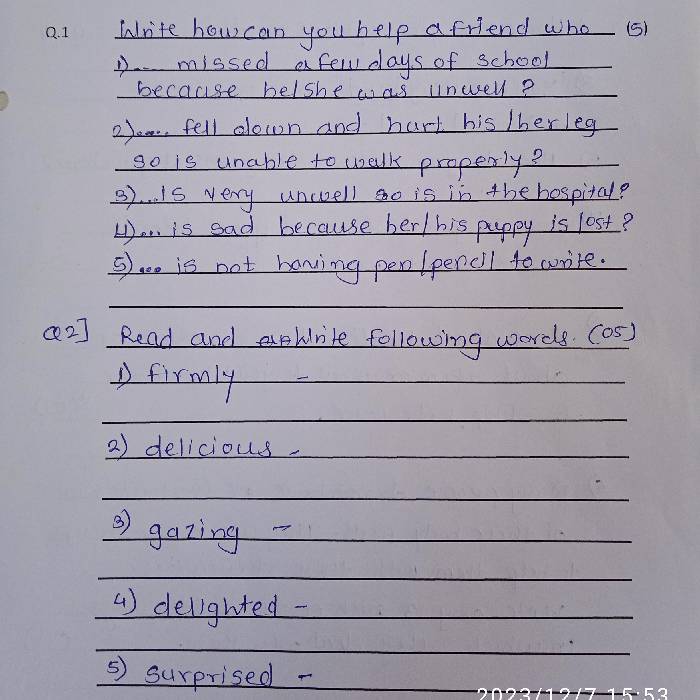 Q.1 Write how can you help a friend who (5)
1)... missed a few days of school
because he/she was unwell ?
2)..... fell down and hurt his/her leg
so is unable to walk properly?
3)...is very unwell so is in the hospital?
4)... is sad because her/his puppy is lost?
5)... is not having pen/pencil to write.
Q2] Read and Write following words. (05)
1) firmly –
2) delicious –
3) gazing –
4) delighted –
5) surprised –
2023/12/7 15:53